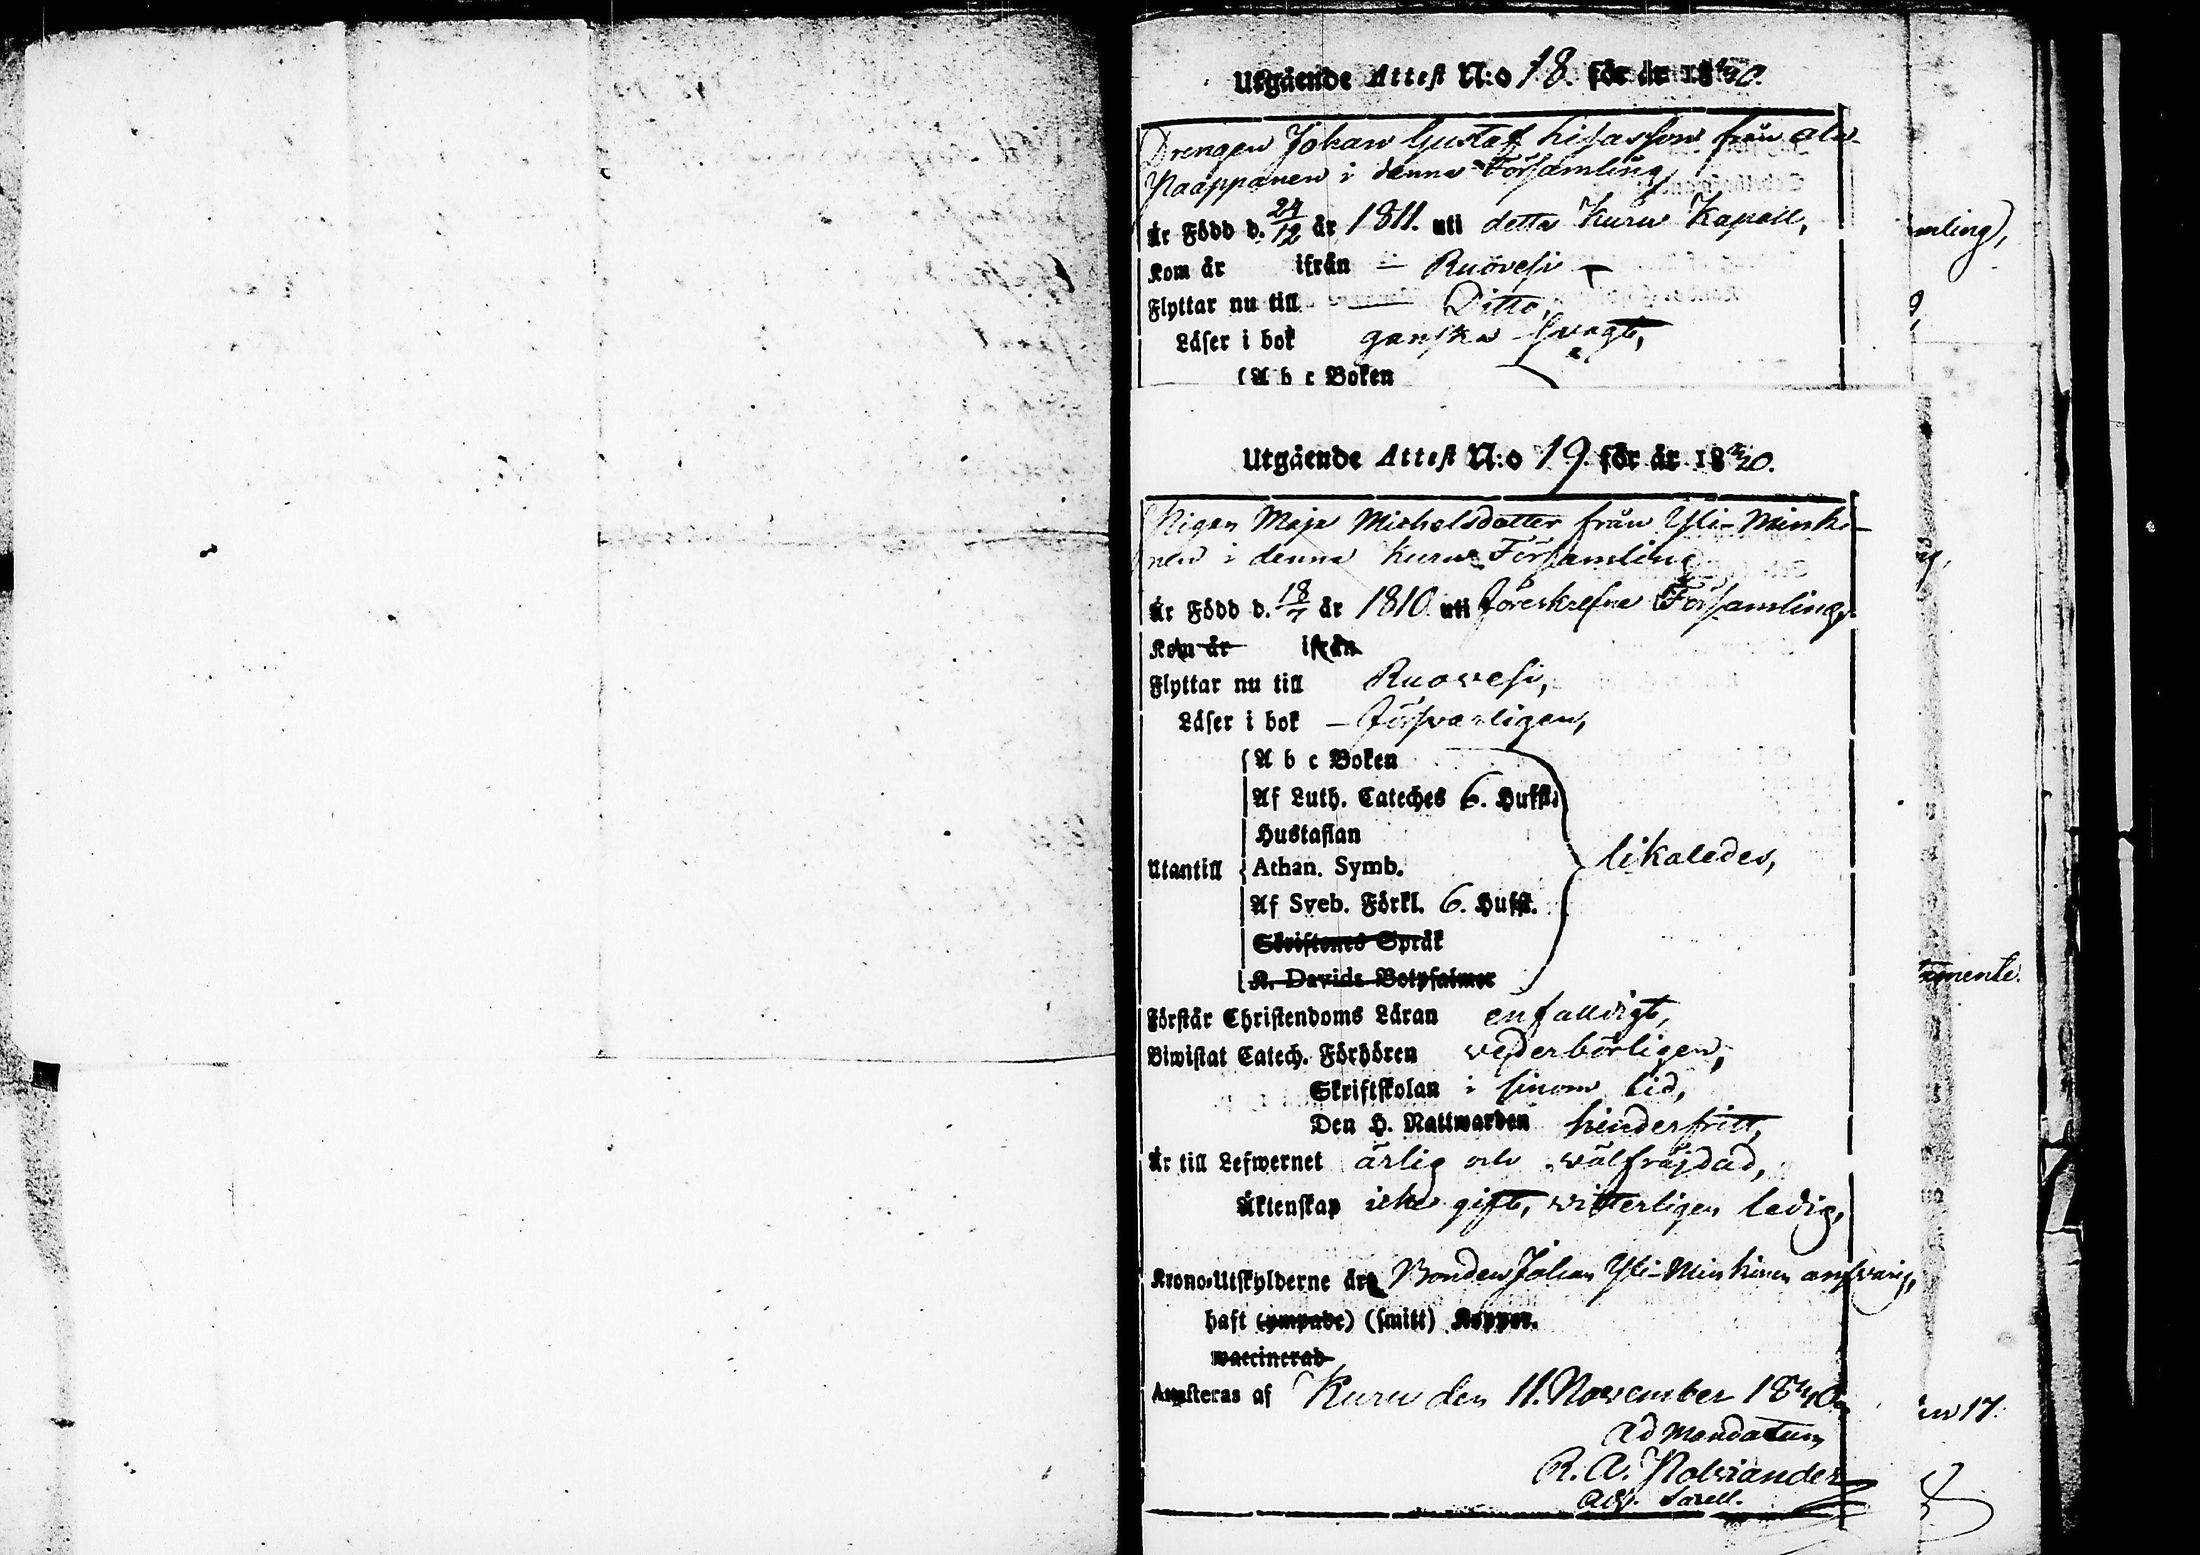 Utgående Attest N:o 18. för år 1840.
Drengen Johan Gustaf Lisasson från Ala-
Naappanen i denna Församling,
Är Född d. 24/12 år 1811. uti detta Kuru Kapell,
Kom år ifrån Ruovesi
Flyttar nu till Ditto,
Läser i bok ganska svagt,
A b c Boken
mling,
Utgående Attest N:o 19. för år 1840.
Pigan Maja Michelsdotter från Yli-Minki-
nen i denna Kuru Församling
Är Född d. 18/7 år 1810. uti föreskrefne Församling,
Kom år ifrån
Flyttar nu till Ruovesi,
Läser i bok – försvarligen,
A b c Boken
Af Luth. Cateches 6. Hufst.
Hustaflan
Utantill Athan. Symb. likaledes,
Af Sveb. Förkl. 6. Hufst.
Skriftenes Språk
K. Davids Botpsalmer
amente.
Förstår Christendoms Läran enfalldigt,
Biwistat Catech. Förhören vederbörligen,
Skriftskolan i sinom tid,
Den H. Nattwarden hinderfritt,
Är till Lefwernet ärlig och välfräjdad,
Äktenskap icke gift, vitterligen ledig,
Krono-Utskylderne är Bonden Johan Yli-Minkinen ansvarig,
haft (ympade) (smitt) Koppor.
waccinerad
Attesteras af Kuru den 11. November 1840.
17.
ad Mandatum
R. A. Nobiander
Adj. Sacell.